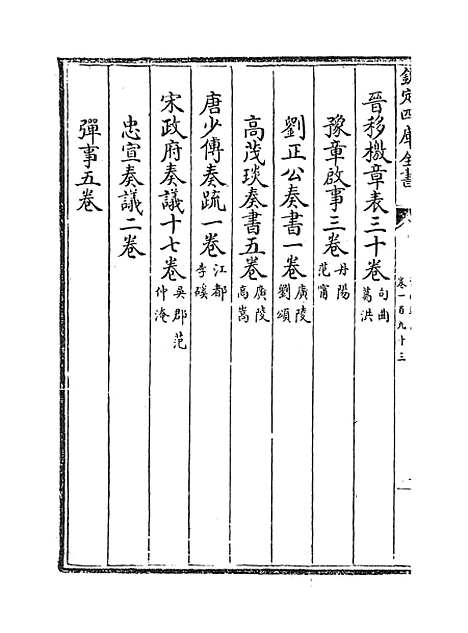 欽定四庫全書
卷一百九十三
晉移檄章表三十卷 句曲葛洪
豫章啟事三卷 丹陽范甯
劉正公奏書一卷 廣陵劉頌
高茂琰奏書五卷 廣陵高嵩
唐少傅奏疏一卷 江都李磎
宋政府奏議十七卷 吳郡范仲淹
忠宣奏議二卷
彈事五卷